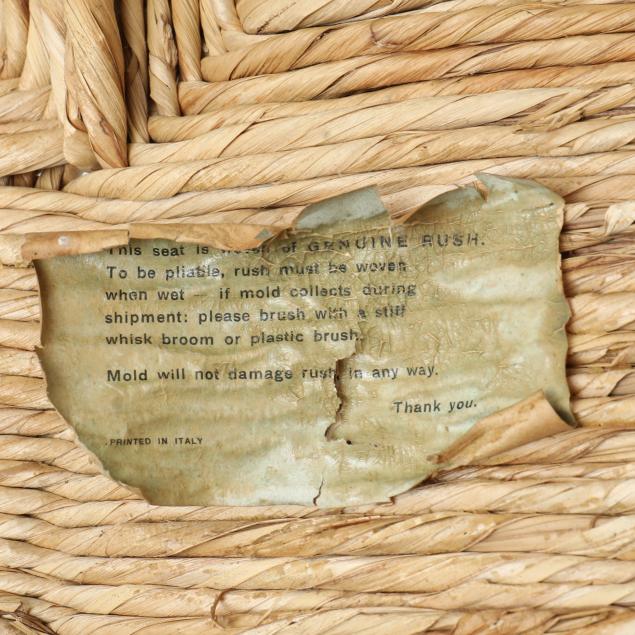 This seat is woven of GENUINE RUSH.
To be pliable, rush must be woven
when wet — if mold collects during
shipment: please brush with a stiff
whisk broom or plastic brush.
Mold will not damage rush in any way.
Thank you.
PRINTED IN ITALY